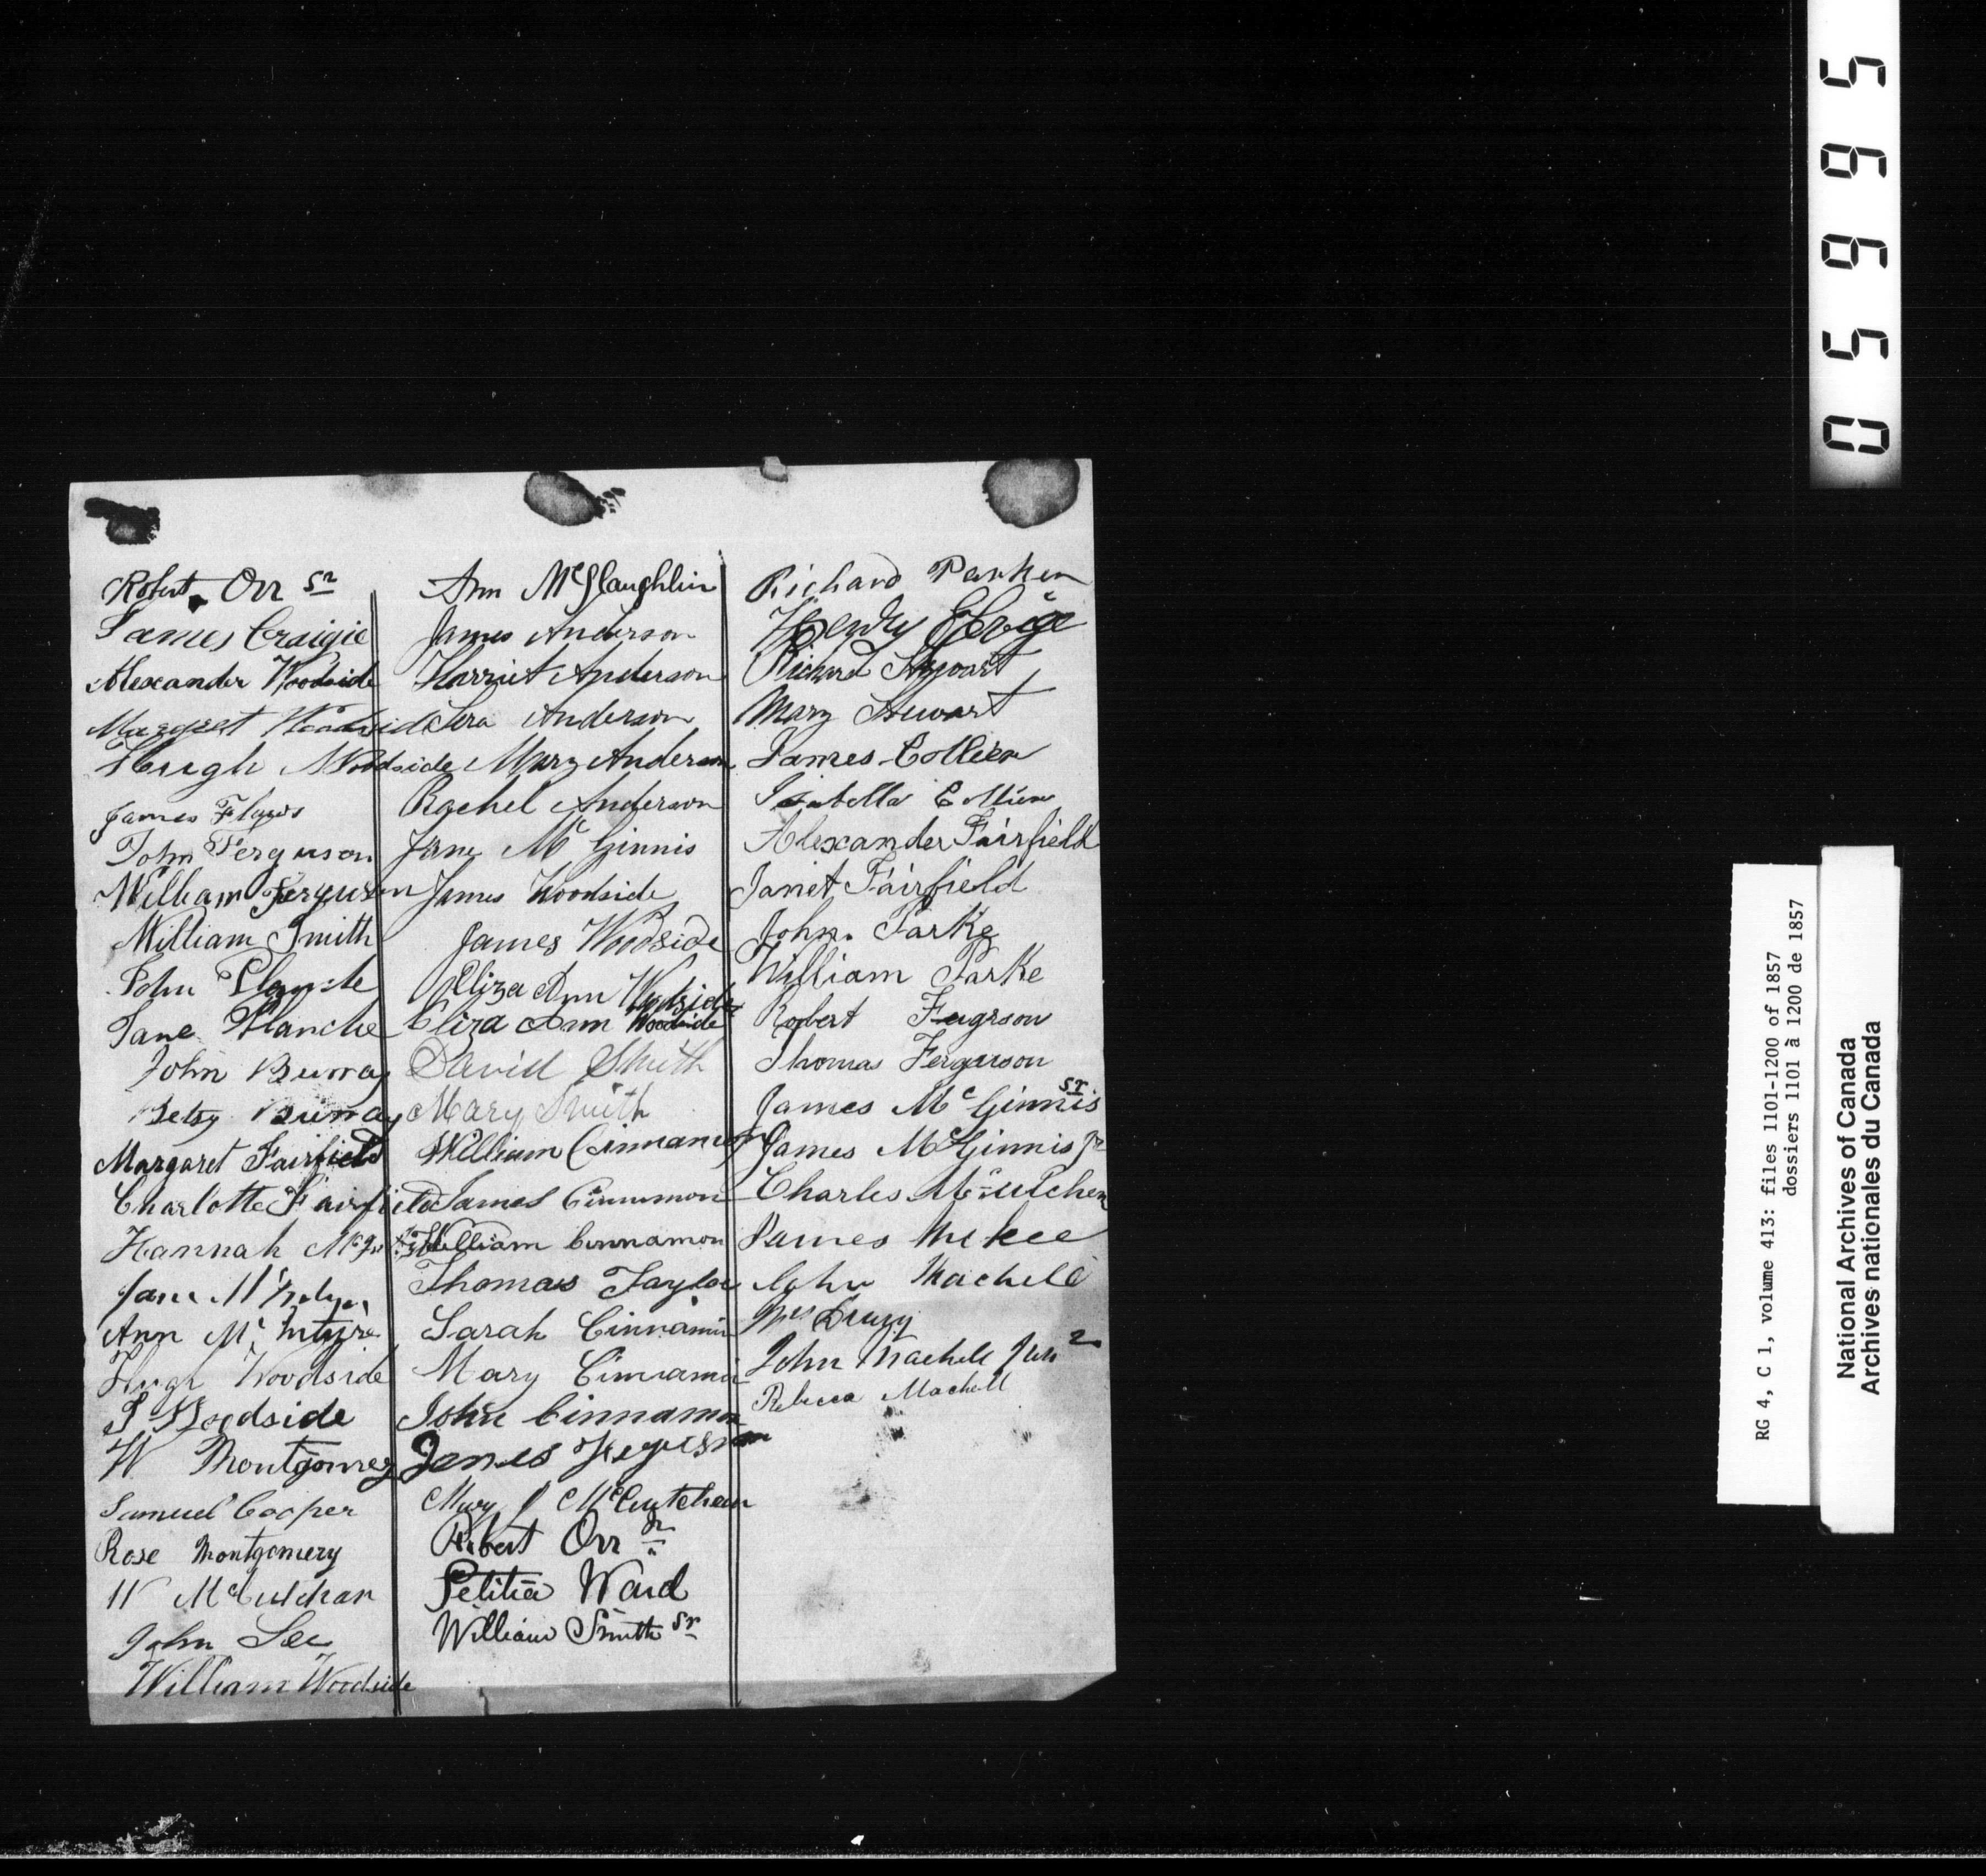 Robert Orr Sr
James Craigie
Alexander Woodside
Margret Woodside
Hugh Woodside
James Flaws
John Ferguson
William Ferguson
William Smith
John
Jane Planche
John
Betsy
Margaret Fairfield
Charlotte Fairfield
Hannah
Jane
Ann Mc Intyre
Hugh Woodside
J Woodside
W Montgomery
Samuel Cooper
Rose Montgomery
W McCutchan
John Lee
William Woodside
Ann McGlaughlin
James Anderson
Harriet Anderson
Anderson
Mary Anderson
Rachel Anderson
Jane Mc Ginnis
James Woodside
James Woodside
Eliza Ann Woodside
Eliza Ann Woodside
David Smith
Mary Smith
William Cinnamon
James Cinnamon
William Cinnamon
Thomas Taylor
Sarah Cinnamon
Mary Cinnamon
John Cinnamon
James Ferguson
Mary J McCutchean
Robert Orr Jr
Letitia Ward
William Smith Sr
Richard Parker
Henry
Richard Stewart
Mary Stewart
James Collier
Isabella Collier
Alexander Fairfield
Janet Fairfield
John Parke
William Parke
Robert Fergrson
Thomas Ferguson
James Mc Ginnis Sr
James McGinnis Jr
Charles McCutchen
James McKee
John Machell
John Machell Junr
Rebecca Machell
05665
RG 4, C 1, volume 413: files 1101-1200 of 1857
dossiers 1101 à 1200 de 1857
National Archives of Canada
Archives nationales du Canada